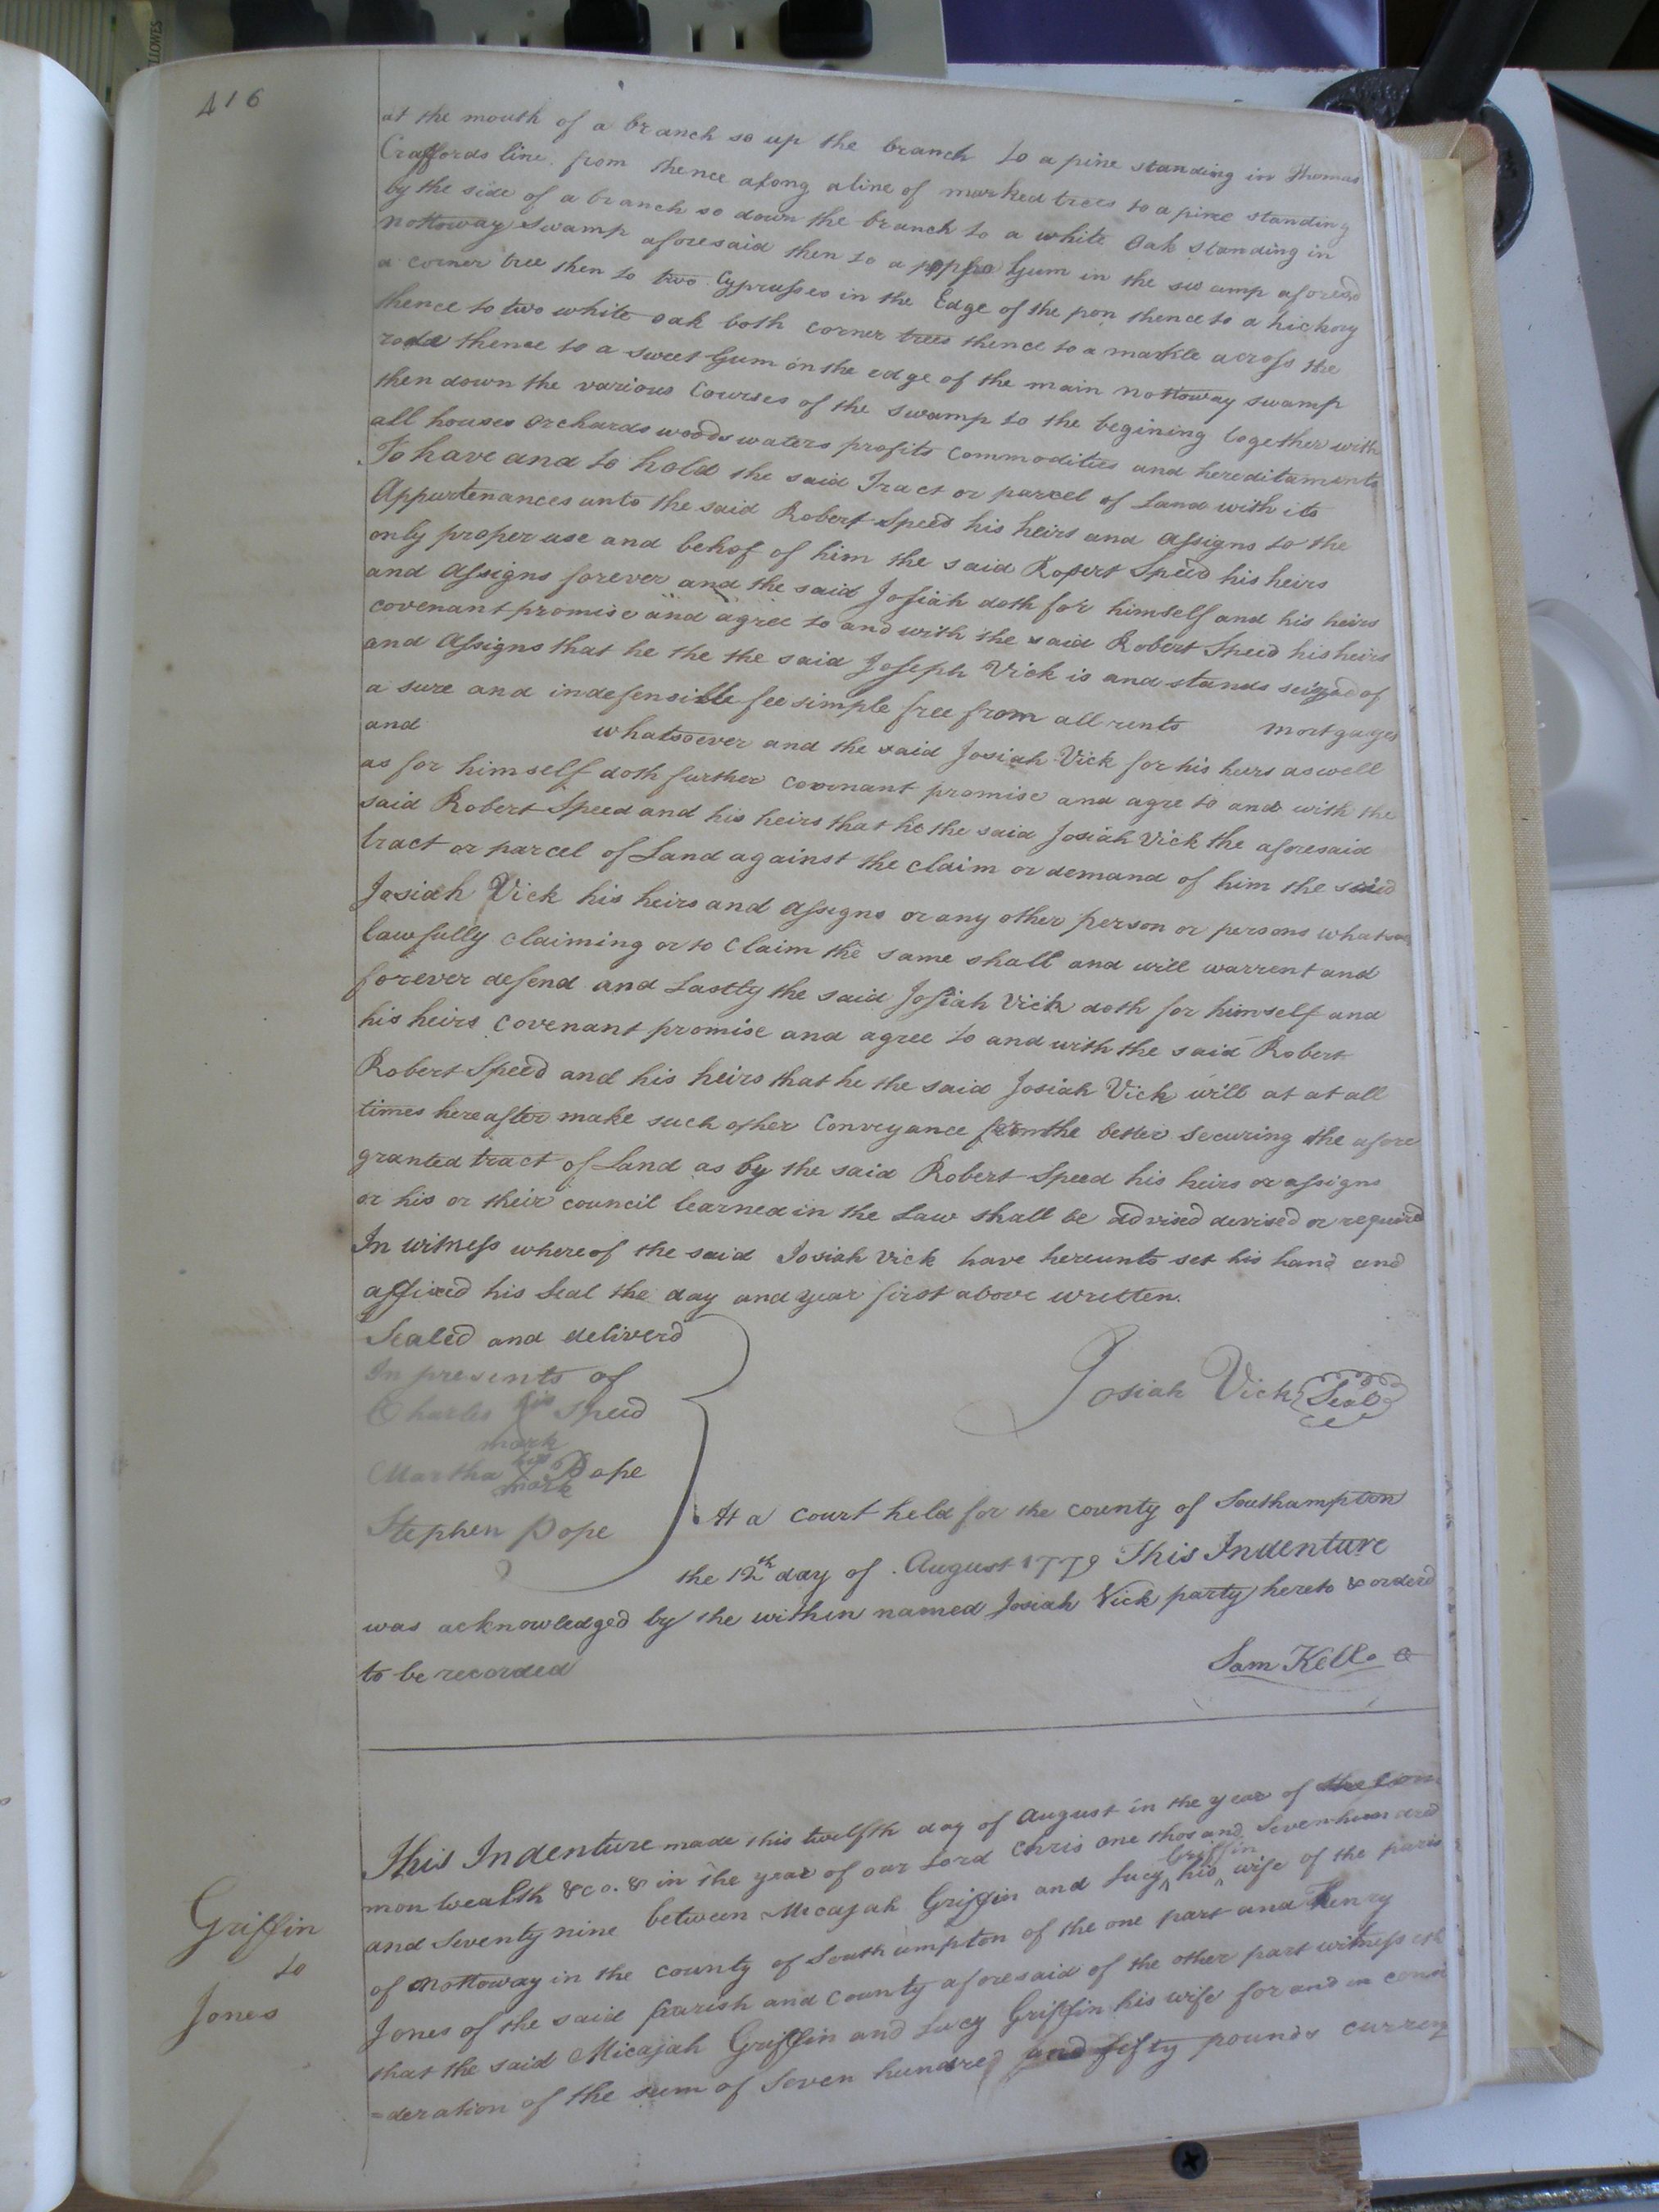 416
at the mouth of a branch so up the branch to a pine standing in Thomas
Craffords line from thence along a line of marked trees to a pine standing
by the side of a branch so down the branch to a white Oak standing in
nottoway swamp aforesaid then to a Gum in the swamp aforesd
a corner tree then to two Cypresses in the Edge of the pon thence to a hickory
thence to two white oak both corner trees thence to a markle across the
rode thence to a sweet Gum on the edge of the main nottoway swamp
then down the various Courses of the swamp to the begining together with
all houses orchards woods waters profits Commodities and hereditaments
To have and to hold the said Tract or parcel of Land with its
Appurtenances unto the said Robert Speed his heirs and assigns to the
only proper use and behof of him the said Robert Speed his heirs
and assigns forever and the said Josiah doth for himself and his heirs
covenant promise and agree to and with the said Robert Speed his heirs
and assigns that he the the said Joseph Vick is and stands seized of
a sure and indefensible fee simple free from all rents mortgages
and whatsoever and the said Josiah Vick for his heirs as well
as for himself doth further covenant promise and agre to and with the
said Robert Speed and his heirs that he the said Josiah Vick the aforesaid
tract or parcel of Land against the claim or demand of him the said
Josiah Vick his heirs and assigns or any other person or persons
lawfully claiming or to claim the same shall and will warrent and
forever defend and Lastly the said Josiah Vick doth for himself and
his heirs covenant promise and agree to and with the said Robert
Robert Speed and his heirs that he the said Josiah Vick will at at all
times hereafter make such other Conveyance the better securing the afore
granted tract of Land as by the said Robert Speed his heirs or assigns
or his or their council learned in the Law shall be advised devised or required
In witness whereof the said Josiah Vick have hereunto set his hand and
affixed his Seal the day and year first above written.
Sealed and deliverd
In presents of
Josiah Vick Seal
Charles his X Speed
mark
Martha her X Pope
mark
Stephen Pope
At a Court held for the county of Southampton
the 12th day of August 1779 This Indenture
was acknowledged by the within named Josiah Vick party hereto & orderd
to be recorded
Sam Kello
Griffin
to
Jones
This Indenture made this twelfth day of August in the year of the Com
mon wealth &co. & in the year of our Lord Chris one thosand Seven hundred
and Seventy nine between Micajah Griffin and Lucy Griffin his wife of the paris
of Nottoway in the County of Southampton of the one part and Henry
Jones of the said parish and County aforesaid of the other part witnesseth
that the said Micajah Griffin and Lucy Griffin his wife for and in consi
=deration of the sum of Seven hundred and fifty pounds curren